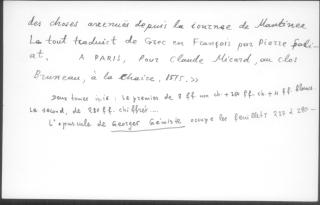 des choses avenues depuis la journée de Mantinée
Le tout traduit de Grec en François par Pierre Sali-
at. A PARIS, Pour Claude Micard, au clos
Bruneau, à la Chaire, 1575. >>
Deux tomes in-16 : le premier de 8 ff. non ch. + 287 ff. ch. + 1 ff. blanc.
Le second, de 280 ff. chiffrés....
L'opuscule de Georges Gémiste occupe les feuillets 237 à 280 —